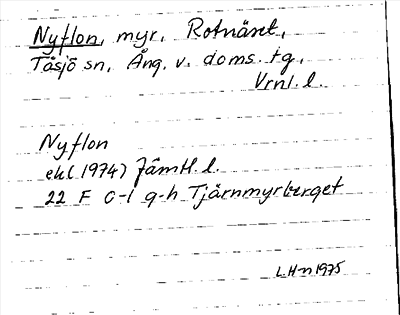 Nyflon, myr, Rotnäset,
Tåsjö sn, Ång. v. doms. tg,
Vrnl. l.
Nyflon
ek (1974) Jämtl. l.
22 F c-d g-h Tjärnmyrberget
L.H-n 1975